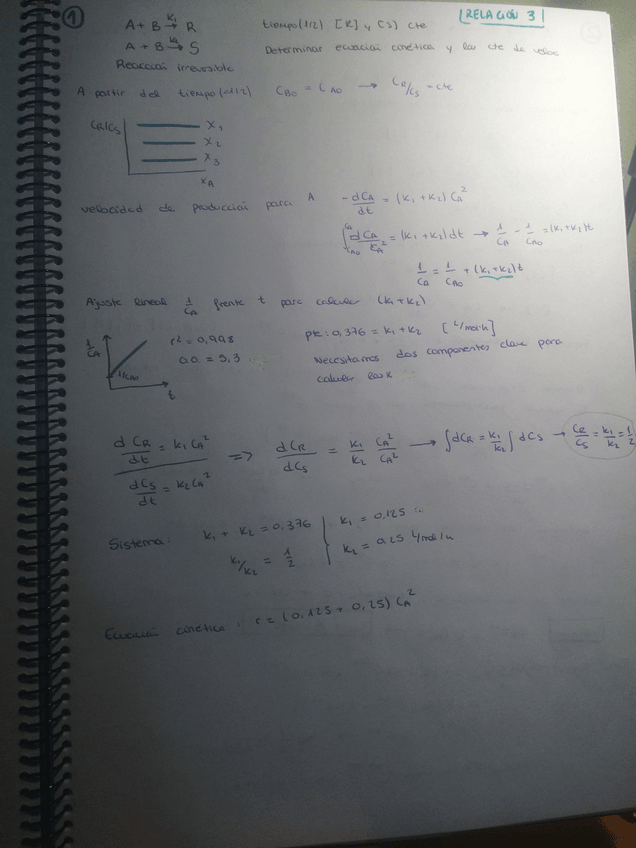 1
RELACIÓN 3
A + B →k1 R tiempo (1/2) [R] y [S] cte
A + B →k2 S Determinar ecuación cinética y las cte de veloc
Reacción irreversible
A partir del tiempo (1/2) CB0 = CA0 → CR/CS = cte
CR/CS
X1
X2
X3
XA
velocidad de producción para A -dCA/dt = (k1 + k2) CA²
∫CA0^CA dCA/CA² = (k1 + k2) dt → 1/CA - 1/CA0 = (k1 + k2)t
1/CA = 1/CA0 + (k1 + k2) t
Ajuste lineal 1/CA frente t para calcular (k1 + k2)
1/CA
1/CA0
t
r² = 0,998
o.o. = 5,3
pte: 0,376 = k1 + k2 [L/mol·h]
Necesitamos dos componentes clave para
calcular las k
dCR/dt = k1 CA²
dCS/dt = k2 CA²
=> dCR/dCS = k1/k2 CA²/CA² → ∫dCR = k1/k2 ∫dCS → CR/CS = k1/k2 = 1/2
Sistema: k1 + k2 = 0,376 | k1 = 0,125
k1/k2 = 1/2 | k2 = 0,25 L/mol·h
Ecuación cinética: r = (0,125 + 0,25) CA²